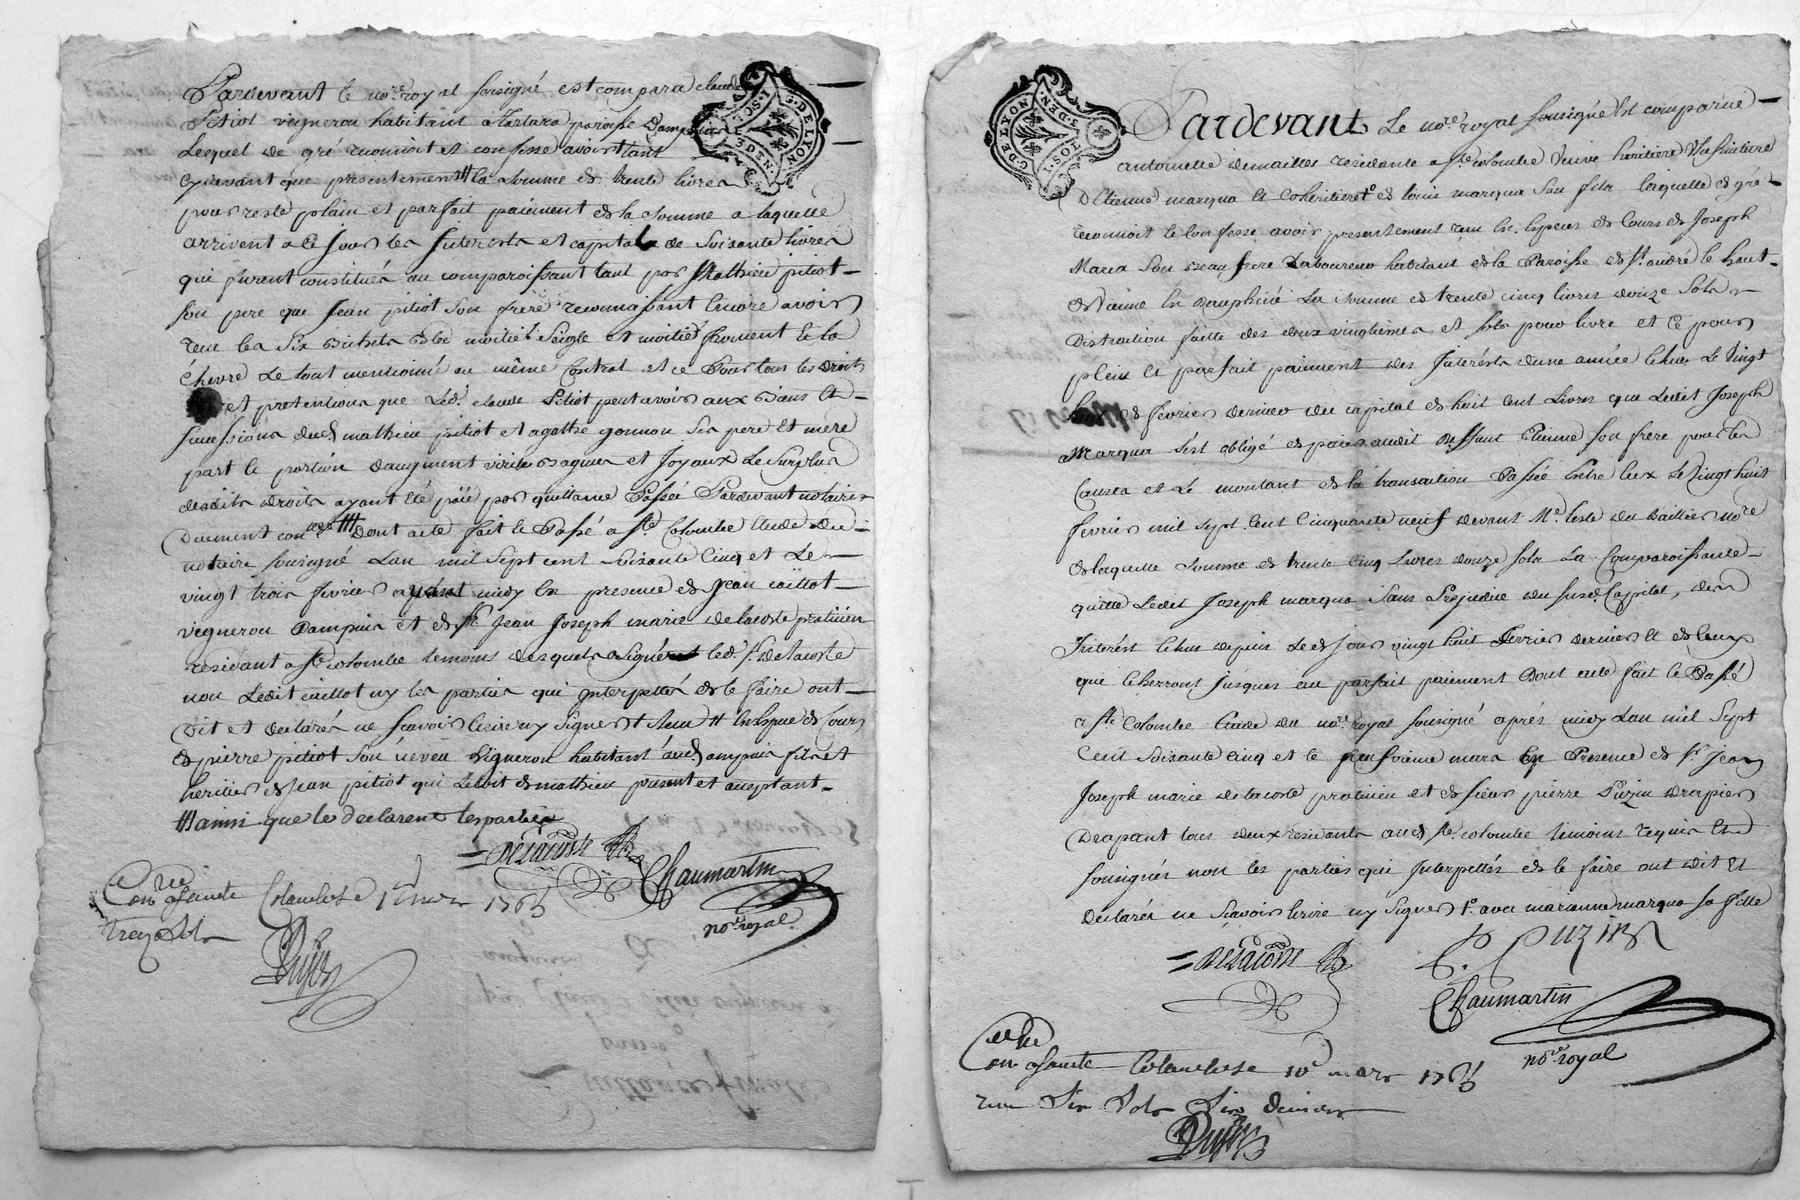 Pardevant le no.re royal sousigné est comparu claude
Pitiot vigneron habitant a Tartara paroisse Dampuis
Lequel de gré reconnoit et confesse avoir tant
cydevant que presentement # la somme de trente livres
pour reste plain et parfait paiement de la somme a laquelle
arrivent a ce jour les Interests et capital de soixante livres
qui furent constitués au comparoissant tant par Mathieu pitiot
son pere que Jean pitiot son frere reconnaissant Encore avoir
recu les six bichets blé moitié seigle et moitié froment Et la
chevre Le tout mentionné au même Contrat et ce Pour tous les droits
et pretentions que Led. claude Pitiot peut avoir aux biens Et
successions dud. mathieu pitiot et agathe gonnon ses pere Et mere
part et portion daugment virile bagues et Joyaux Le surplus
desdits droits ayant eté païé par quittance Passée Pardevant notaire
Duement con.lée # Dont acte fait et Passé a ste Colombe Etude du
notaire sousigné Lan mil sept cent soixante Cinq et Le
vingt trois fevrier avant midy En presence de Jean caillot
vigneron Dampuis et de sr. Jean Joseph marie delacoste praticien
residant a ste colombe temoins desquels a signé led. sr. Delacoste
non Ledit caillot ny les parties qui Interpellés de le faire ont
Dit et declarés ne scavoir Ecrire ny signer # En Espece de Cours
de pierre pitiot son neveu vigneron habitant aud. ampuis fils et
heritier de Jean pitiot qui Letoit de mathieu present et acceptant
# ainsi que le declarent les parties
= DELACOSTE
Chaumartin
no.re royal
C.lé
en Sainte Colombe le 1er mars 1765
treize sols
Dujas
G. DE LYON
I. SOL
3 DEN.
Pardevant Le no.re royal sousigné Est comparue
antoinette demailles residante a ste colombe Veuve heritiere Usufruitiere
D'Etienne marqua Et Coheritiere 1° de louis marqua son fils laquelle de gré
reconnoit et confesse avoir presentement recu En Especes de Cours de Joseph
Marqua son beau frere Laboureur habitant de la Paroisse de st. andré le haut
de Vienne En dauphiné La somme de trente cinq livres douze sols
Distraction faitte des deux vingtiemes et sols pour livre et Ce pour
plein Et parfait paiment des Interésts dune année Echue Le Vingt
huit de fevrier dernier du capital de huit cent Livres que Ledit Joseph
Marqua s'est obligé de paier audit deffunt Etienne son frere pour les
Causes et Le montant de la transaction Passée Entre Eux Le Vingt huit
fevrier mil sept Cent Cinquante neuf devant Me. Teste du Baillier no.re
de laquelle somme de trente Cinq Livres douze sols La Comparoissante
quitte Ledit Joseph marqua sans Prejudice du susd. Capital, des
Interést Echus depuis Led. jour vingt huit Fevrier dernier Et de Ceux
que Echerront Jusques au parfait paiement Dont acte fait Et Passé
a ste Colombe Etude du no.re royal sousigné aprés midy Lan mil Sept
Cent soixante Cinq et le troisieme mars En Presence de sr. Jean
Joseph marie delacoste praticien et de sieur pierre Puzin drapier
Drapant tous deux residants aud. ste. colombe temoins requis Et
sousignés non les parties qui Interpellés de le faire ont dit Et
declarés ne sçavoir Ecrire ny signer 1° avec marianne marqua sa fille
= DELACOSTE
P. PUZIN
Chaumartin
no.re royal
C.lé
en Sainte Colombe le 10e mars 1765
recu six sols six deniers
Dujas
G. DE LYON
I. SOL
3. DEN.